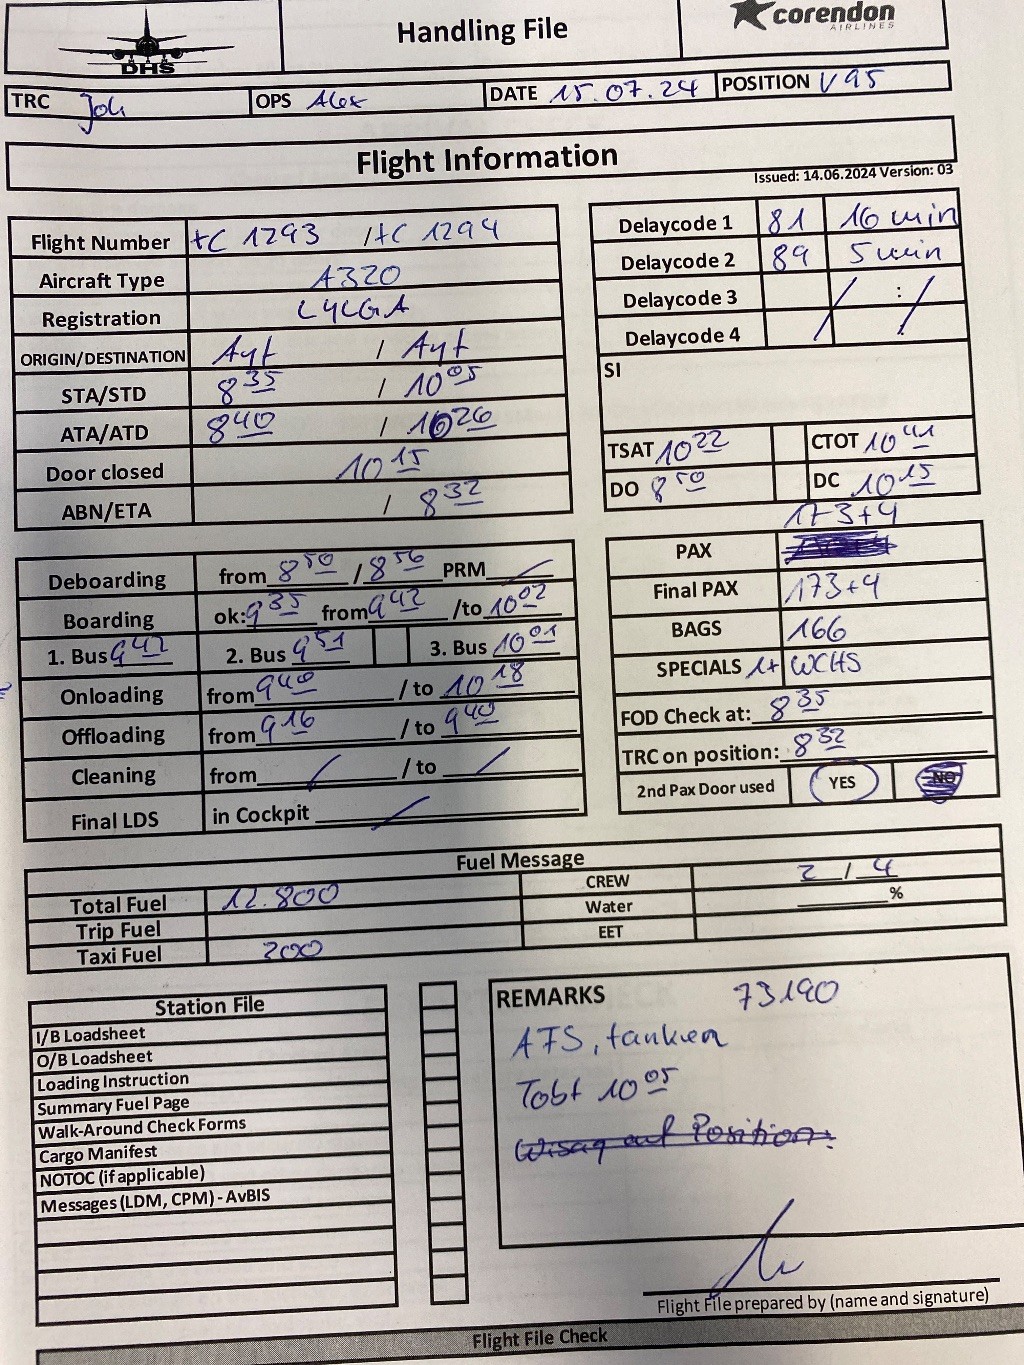 DHS
Handling File
corendon
AIRLINES
TRC Joh OPS Alex DATE 15.07.24 POSITION V95
Flight Information
Issued: 14.06.2024 Version: 03
Flight Number XC 1293 / XC 1294
Aircraft Type A320
Registration LYLGA
ORIGIN/DESTINATION Ayt / Ayt
STA/STD 8 35 / 10 05
ATA/ATD 8 40 / 10 26
Door closed 10 15
ABN/ETA / 8 32
Delaycode 1 81 16 min
Delaycode 2 89 5 min
Delaycode 3 :
Delaycode 4 :
SI
TSAT 10 22 CTOT 10 41
DO 8 50 DC 10 15
Deboarding from 8 50 / 8 56 PRM
Boarding ok: 9 35 from 9 42 /to 10 02
1. Bus 9 47 2. Bus 9 51 3. Bus 10 01
Onloading from 9 40 / to 10 18
Offloading from 9 16 / to 9 40
Cleaning from / to
Final LDS in Cockpit
173+4
PAX
Final PAX 173+4
BAGS 166
SPECIALS 1x WCHS
FOD Check at: 8 35
TRC on position: 8 32
2nd Pax Door used YES NO
Fuel Message
Total Fuel 12.800 CREW 2 / 4
Trip Fuel Water %
Taxi Fuel 200 EET
Station File
I/B Loadsheet
O/B Loadsheet
Loading Instruction
Summary Fuel Page
Walk-Around Check Forms
Cargo Manifest
NOTOC (if applicable)
Messages (LDM, CPM) - AvBIS
REMARKS 73190
AFS, tanken
Tobt 10 05
Wisag auf Position.
Flight File prepared by (name and signature)
Flight File Check